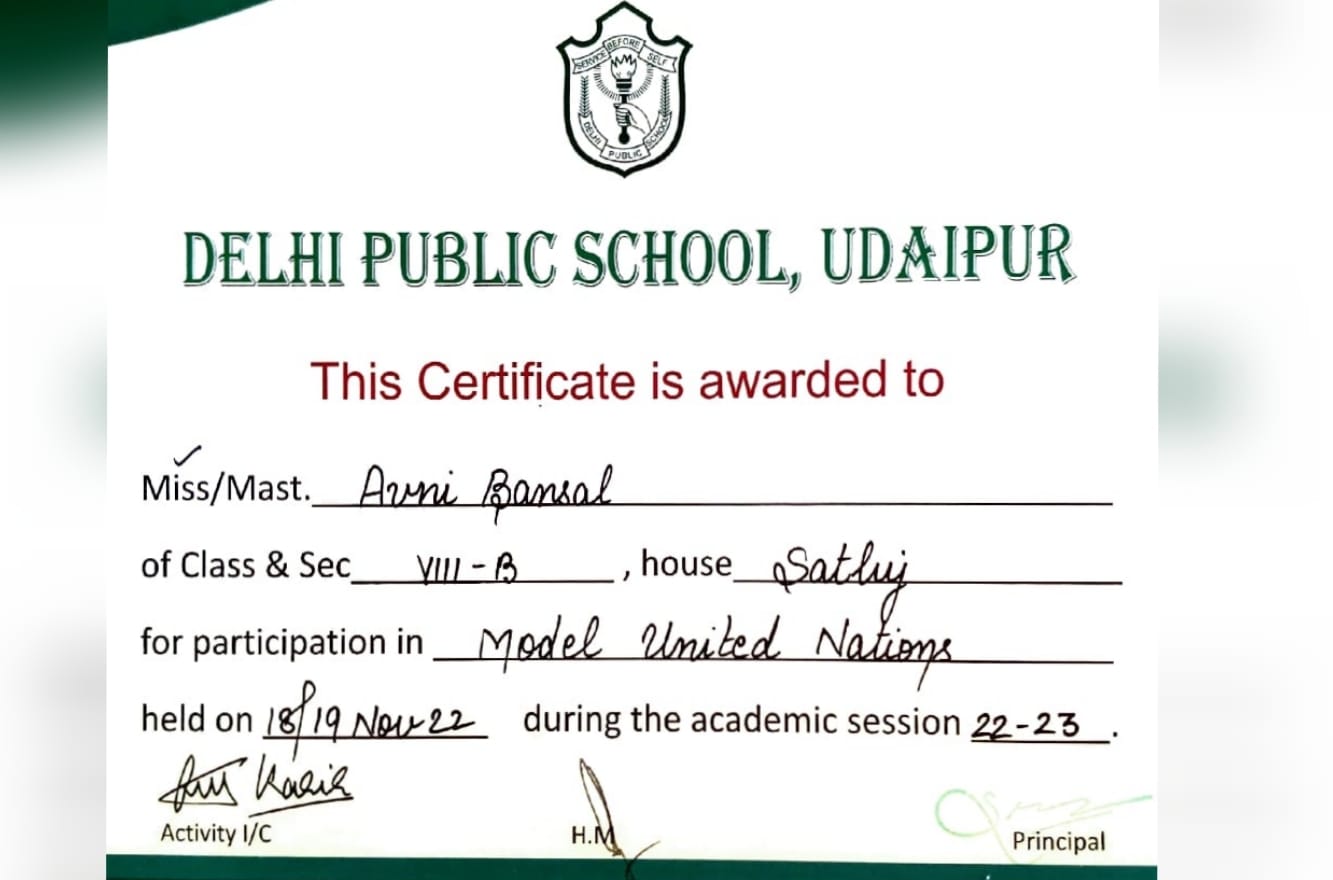 SERVICE BEFORE SELF
DELHI PUBLIC SCHOOL
DELHI PUBLIC SCHOOL, UDAIPUR
This Certificate is awarded to
Miss/Mast. Avni Bansal
of Class & Sec VIII - B , house Satluj
for participation in Model United Nations
held on 18/19 Nov 22 during the academic session 22-23 .
Activity I/C H.M Principal